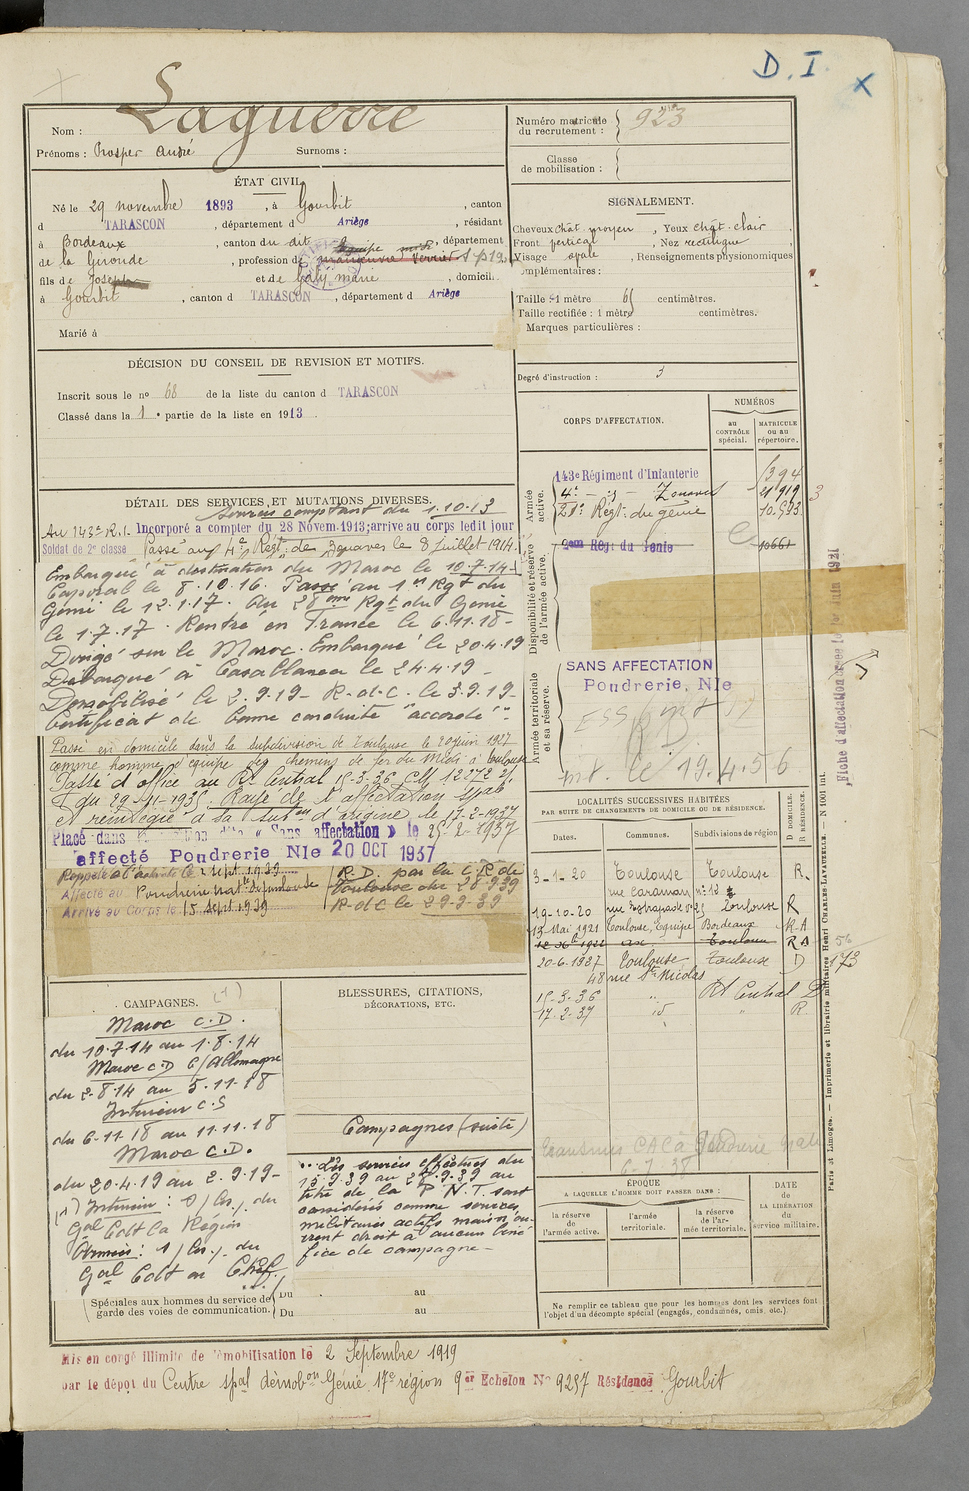 D. I.
x
Nom : Laguerre
Prénoms : Prosper André Surnoms :
Numéro matricule du recrutement : 923
Classe de mobilisation :
ÉTAT CIVIL.
Né le 29 novembre 1893, à Gourbit, canton
d TARASCON, département d Ariège, résidant
à Bordeaux, canton du dit, département
de la Gironde, profession de manoeuvre verrier
fils de Joseph et de Galy marie, domicil
à Gourbit, canton d TARASCON, département d Ariège
Marié à
SIGNALEMENT.
Cheveux chât. moyen, Yeux chât. clair
Front vertical, Nez rectiligne
Visage ovale, Renseignements physionomiques
complémentaires :
Taille : 1 mètre 65 centimètres.
Taille rectifiée : 1 mètre centimètres.
Marques particulières :
Degré d'instruction : 3
DÉCISION DU CONSEIL DE REVISION ET MOTIFS.
Inscrit sous le nº 68 de la liste du canton d TARASCON
Classé dans la 1e partie de la liste en 1913.
CORPS D'AFFECTATION.
NUMÉROS
au CONTRÔLE spécial.
MATRICULE ou au répertoire.
Armée active.
143e Régiment d'Infanterie
4e — Zouaves
28e Régt. du génie
2em Régt du Génie 10661
Disponibilité et réserve de l'armée active.
Armée territoriale et sa réserve.
SANS AFFECTATION
Poudrerie. Nle
int. le 19.4.56
DÉTAIL DES SERVICES ET MUTATIONS DIVERSES.
Services comptant du 1.10.13
Au 143e R.I. Incorporé à compter du 28 Novem. 1913; arrivé au corps ledit jour
Soldat de 2e classe Passé au 4e Régt de Zouaves le 8 juillet 1914.
Embarqué à destination du Maroc le 10.7.14
Caporal le 8.10.16. Passé au 1er Rgt du
Génie le 12.1.17. Au 28ème Rgt du Génie
le 1.7.17. Rentré en France le 6.11.18-
Dirigé sur le Maroc. Embarqué le 20.4.19
Débarqué à Casablanca le 24.4.19 -
Démobilisé le 2.9.19 - R.d.C. le 3.9.19-
Certificat de bonne conduite "accordé".
Passé en domicile dans la subdivision de Toulouse le 20 juin 1927
comme homme d'équipe des chemins de fer du Midi à Toulouse
Passé d'office au Rt Central 15-3-36 CM 12872
du 29-11-1935. Rayé de l'affectation spale
et réintégré à sa subon d'origine le 17-2-1937
Placé dans la position dite « Sans affectation » le 25-2-1937
affecté Poudrerie Nle 20 OCT 1937
Rappelé à l'activité le 2 sept 1939
Affecté au Poudrerie Natle de Toulouse
Arrivé au Corps le 15 sept 1939
R.D. par la C.R de
Toulouse du 28.9.39
R-d-C le 29-9-39
LOCALITÉS SUCCESSIVES HABITÉES
PAR SUITE DE CHANGEMENTS DE DOMICILE OU DE RÉSIDENCE.
Dates. Communes. Subdivisions de région
D DOMICILE. R RÉSIDENCE.
3-1-20 Toulouse Toulouse R.
rue Caraman nº 12
19-10-20 Toulouse R
13 Mai 1921 Toulouse, Equipe Bordeaux R.A
20-6-1927 Toulouse Toulouse D
48 rue St Nicolas
15-3-36 " Rt Central D
17-2-37 " " R.
173
Fiche d'affectation créée le 1er Juin 1921
CAMPAGNES. (1)
Maroc C.D.
du 10.7.14 au 1.8.14
Maroc C.D C/Allemagne
du 2.8.14 au 5.11.18
Intérieur C.S
du 6-11-18 au 11.11.18
Maroc C.D.
du 20.4.19 au 2.9.19-
du
Gal Cdt la Région
du
Gal Cdt en Chef.
BLESSURES, CITATIONS, DÉCORATIONS, ETC.
Campagnes (suite)
Les services effectués du
15.9.39 au 28.9.39 au
titre de la P.N.T. sont
considérés comme services
militaires actifs mais n'ou-
vrent droit à aucun béné
fice de campagne -
ÉPOQUE
A LAQUELLE L'HOMME DOIT PASSER DANS :
la réserve de l'armée active.
l'armée territoriale.
la réserve de l'armée territoriale.
DATE de LA LIBÉRATION du service militaire.
Spéciales aux hommes du service de garde des voies de communication. Du au
Du au
Ne remplir ce tableau que pour les hommes dont les services font l'objet d'un décompte spécial (engagés, condamnés, omis, etc.).
Paris et Limoges. — Imprimerie et librairie militaires Henri CHARLES-LAVAUZELLE. — N 1001 int.
Mis en congé illimité de démobilisation le 2 Septembre 1919
par le dépôt du Centre spal démobon Génie 17e région 9er Echelon Nº 9257 Résidence Gourbit